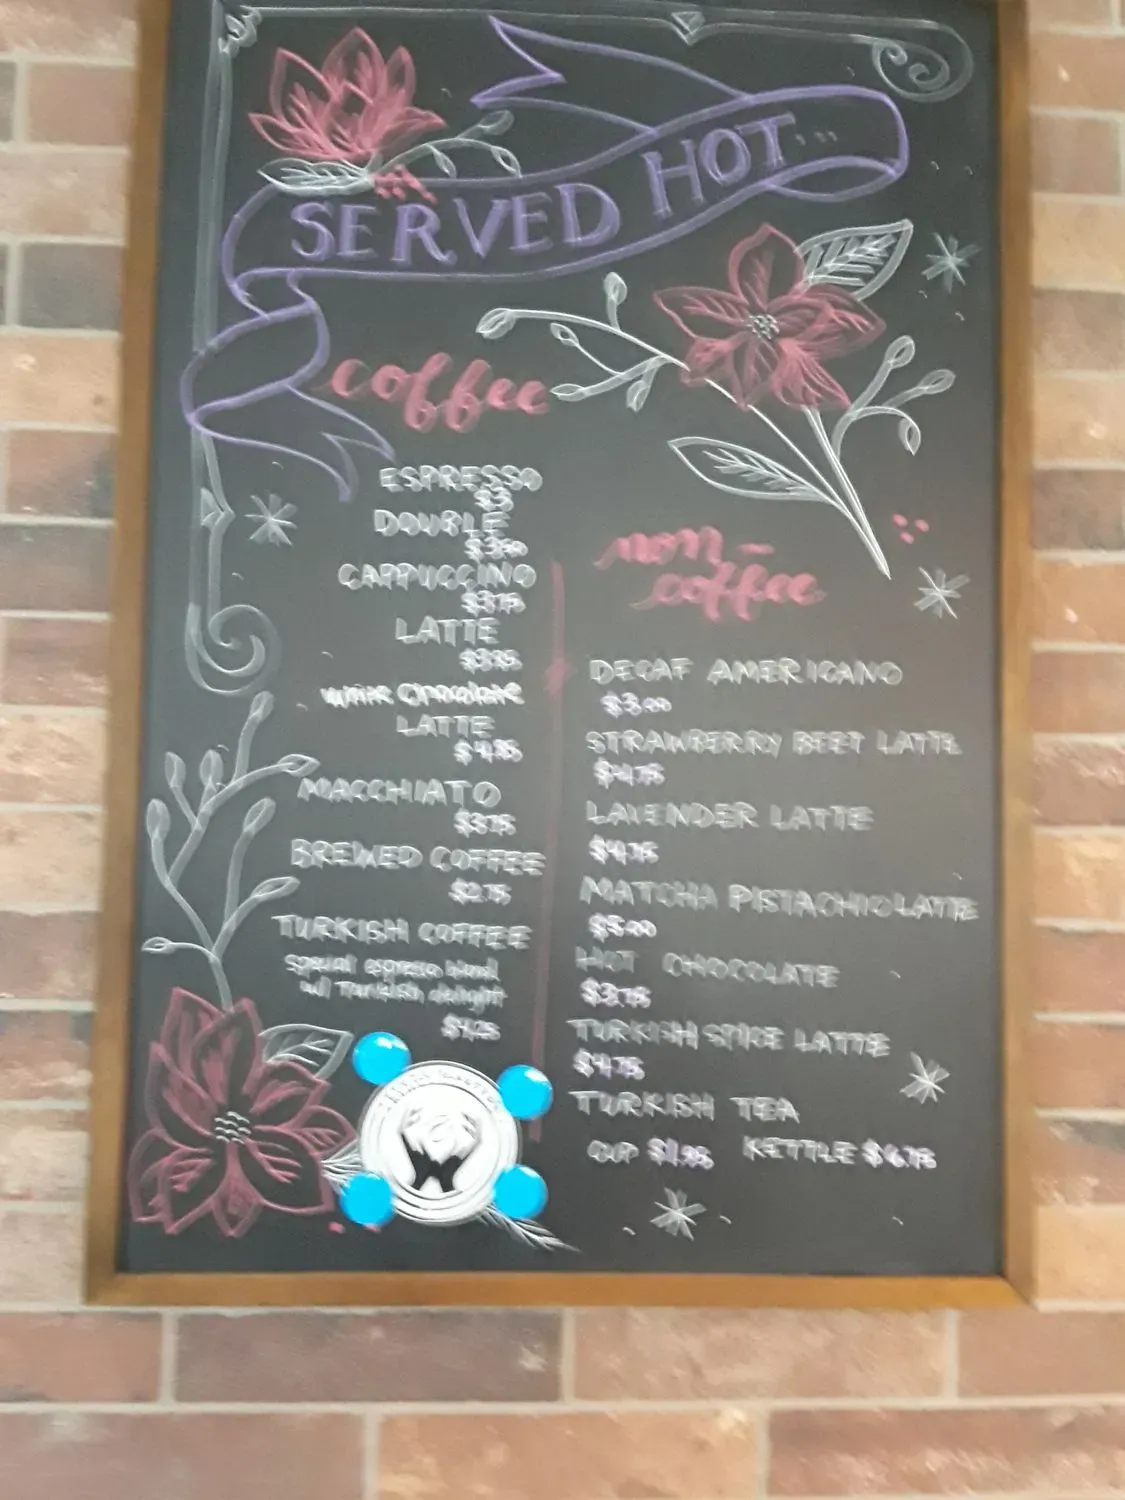 SERVED HOT...
coffee
ESPRESSO
$3
DOUBLE
$3.50
CAPPUCCINO
$3.75
LATTE
$3.95
White Chocolate
LATTE
$4.75
MACCHIATO
$3.75
BREWED COFFEE
$2.75
TURKISH COFFEE
special espresso blend
w/ Turkish delight
$4.25
non-
coffee
DECAF AMERICANO
$3.00
STRAWBERRY BEET LATTE
$4.75
LAVENDER LATTE
$4.75
MATCHA PISTACHIO LATTE
$5.00
HOT CHOCOLATE
$3.75
TURKISH SPICE LATTE
$4.75
TURKISH TEA
CUP $1.95 KETTLE $6.75